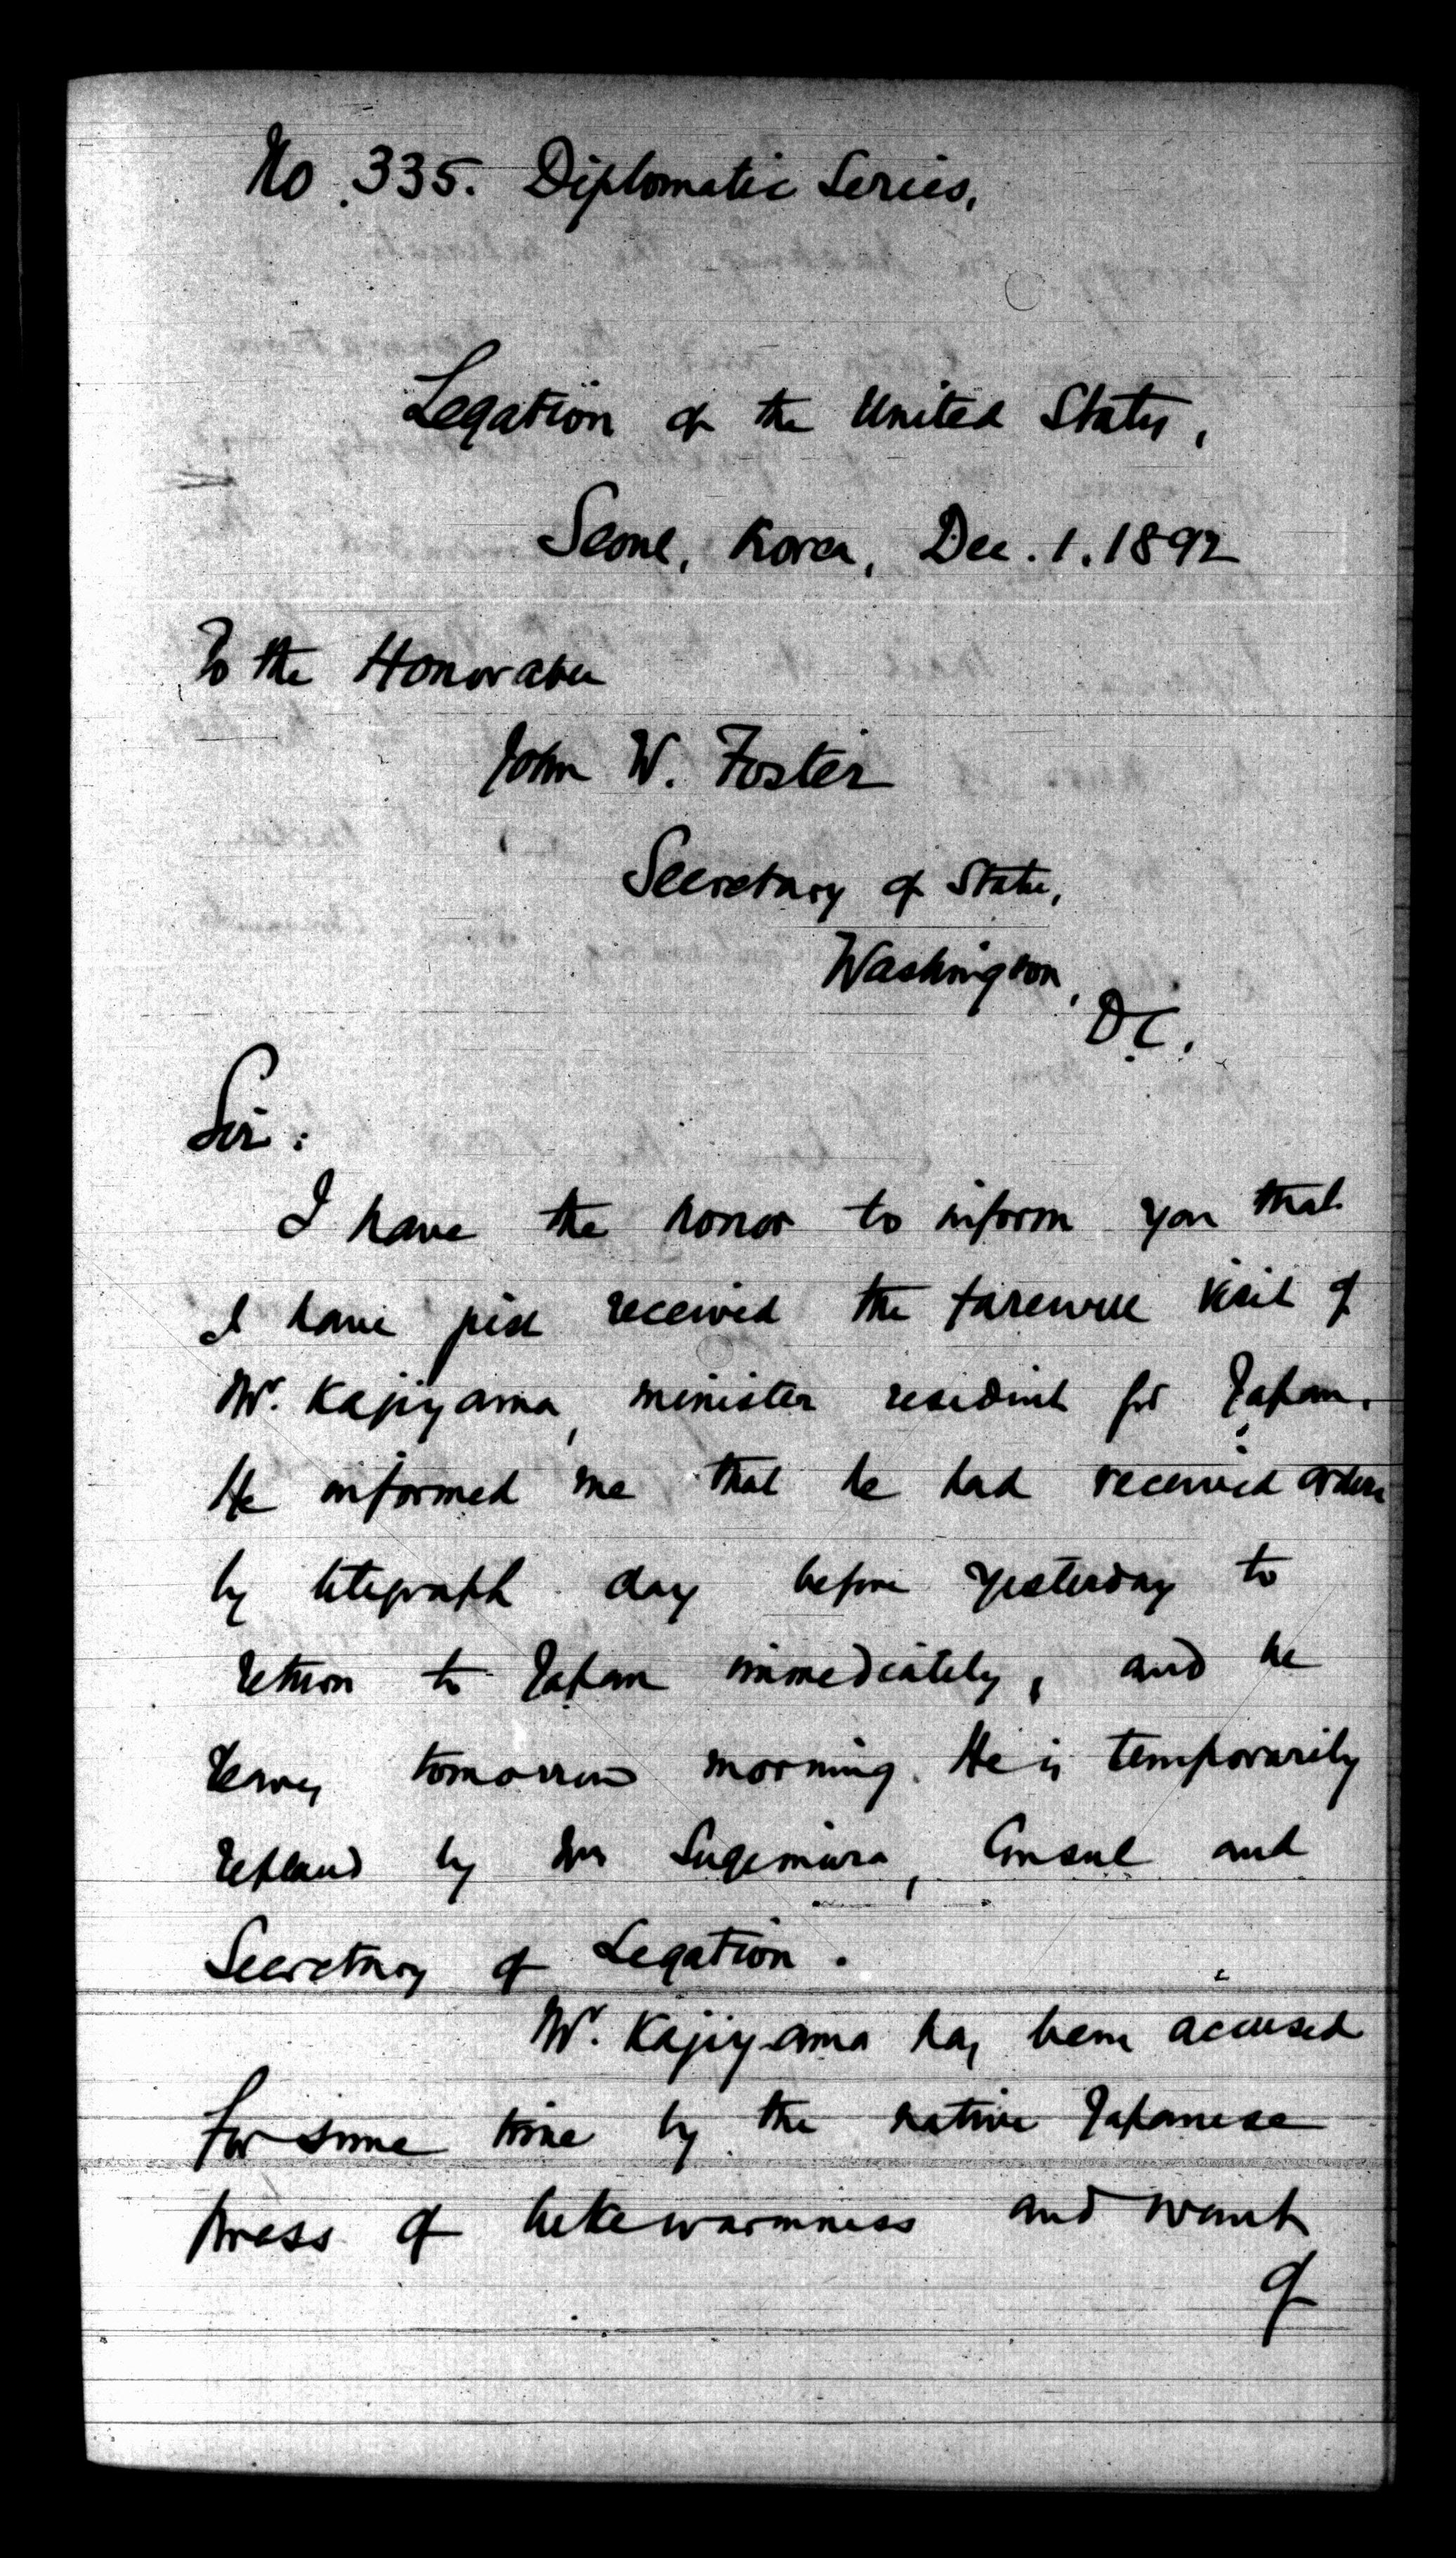 No. 335. Diplomatic Series.
Legation of the United States,
Seoul, Korea, Dec. 1. 1892
To the Honorable
John W. Foster
Secretary of State,
Washington,
D.C.
Sir:
I have the honor to inform you that
I have just received the farewell visit of
Mr. Kajiyama, minister resident for Japan.
He informed me that he had received orders
by telegraph day before yesterday to
return to Japan immediately, and he
leaves tomorrow morning. He is temporarily
replaced by Mr Sugimura, Consul and
Secretary of Legation.
Mr. Kajiyama has been accused
for some time by the native Japanese
press of lukewarmness and want
of